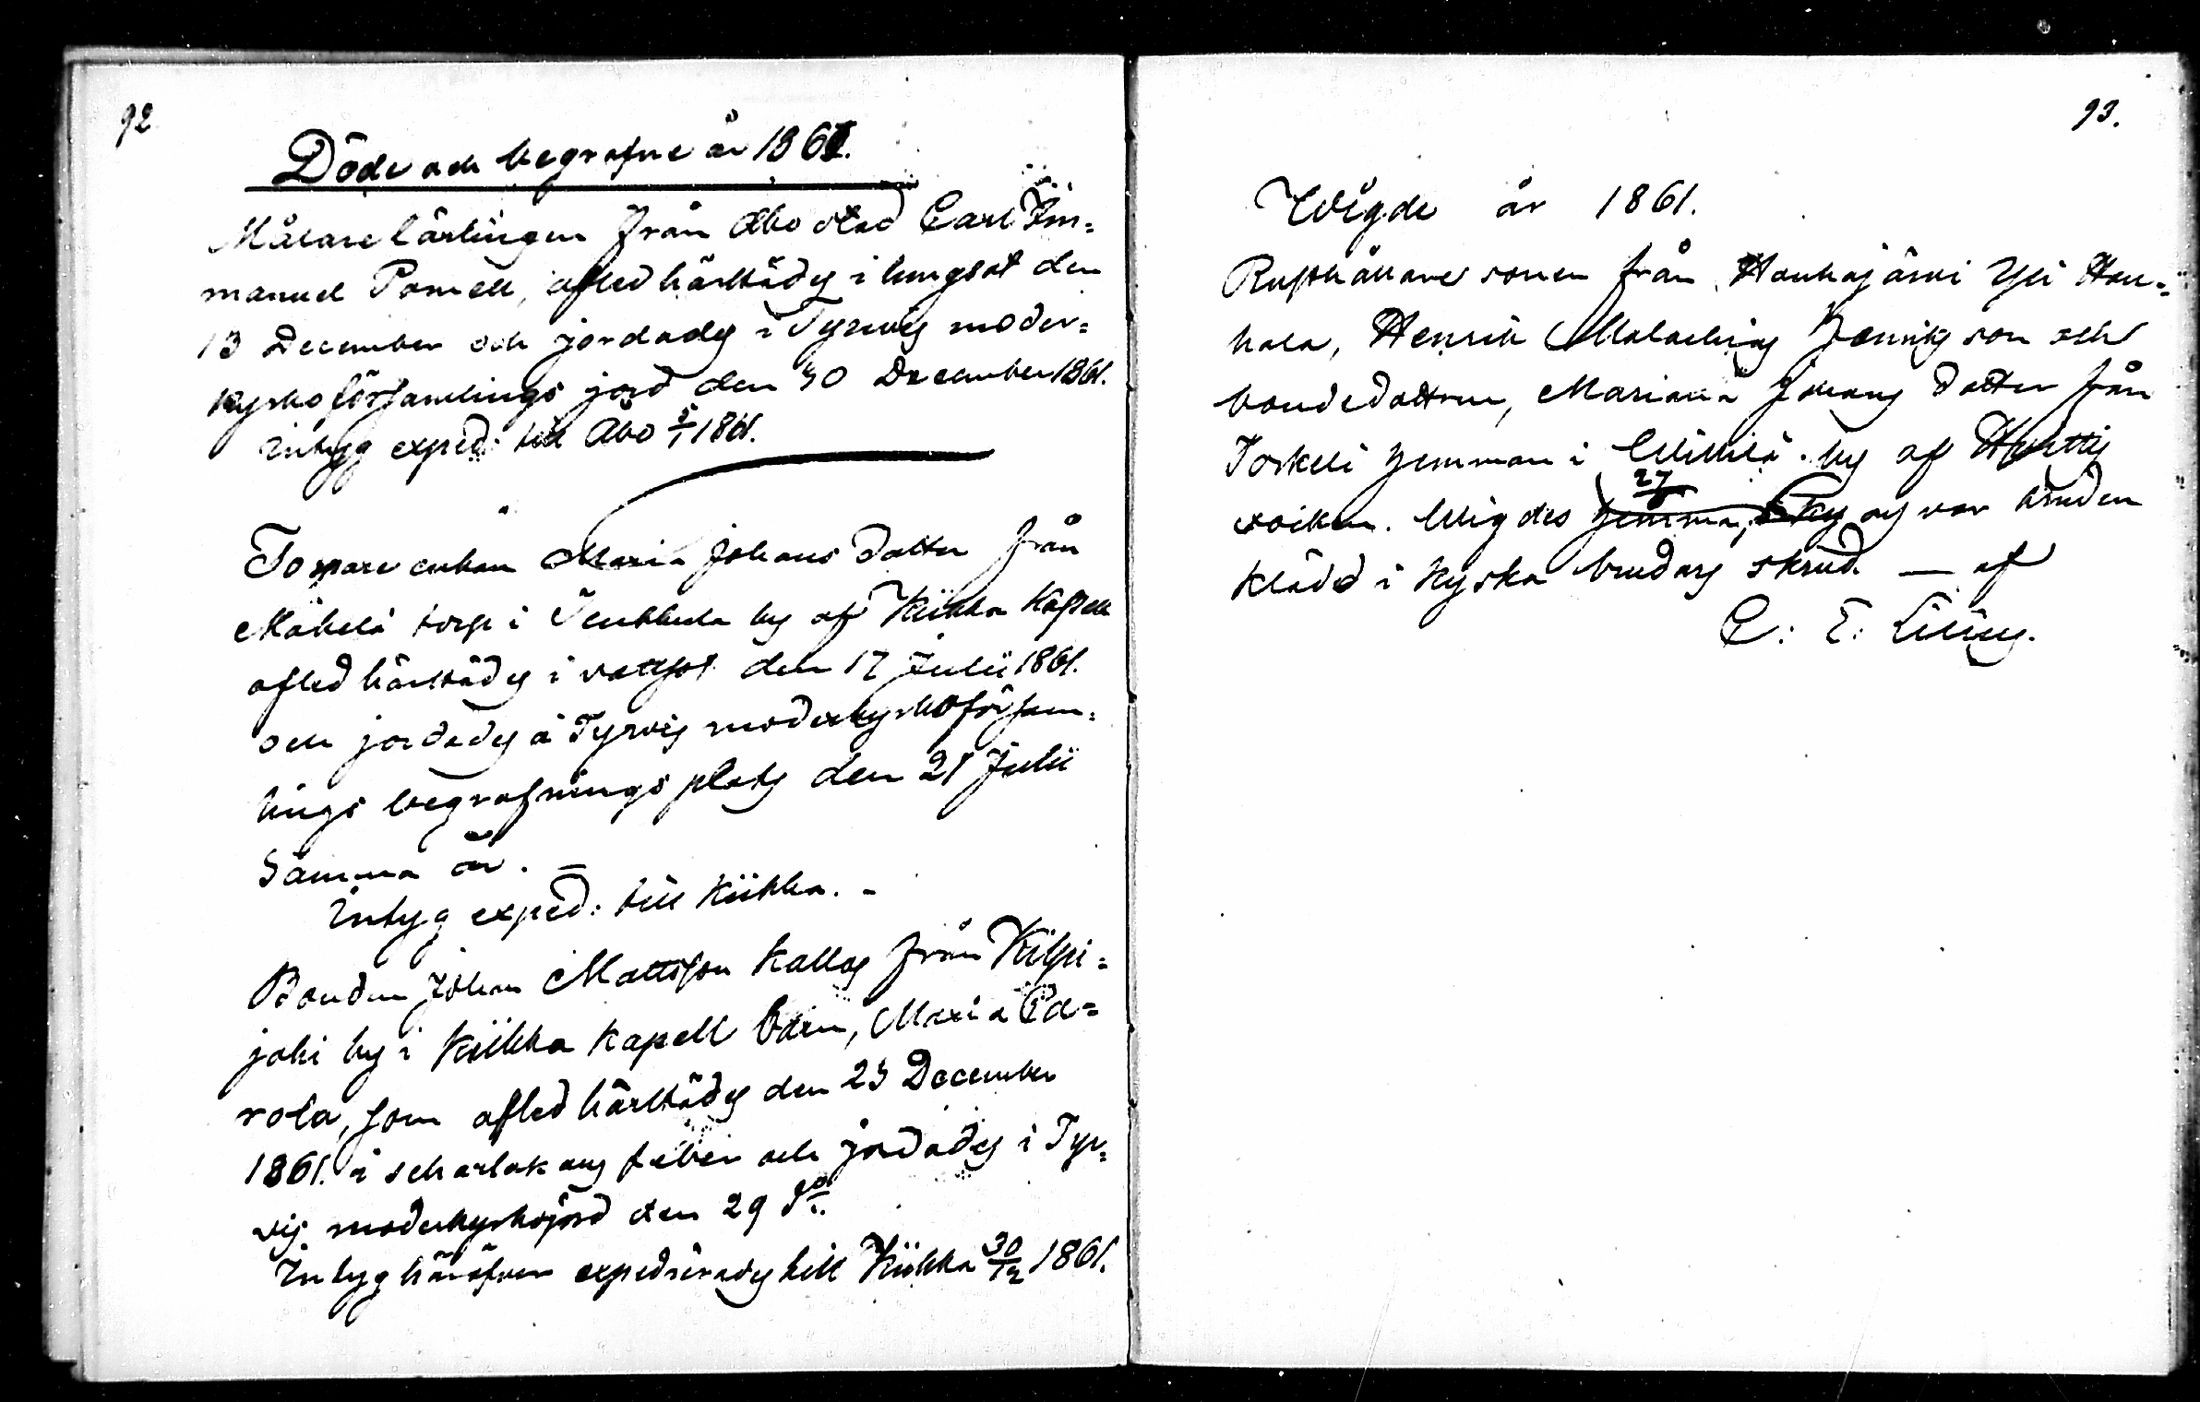 92
Döde och begrafne år 1861.
Målarelärlingen från Åbo stad Carl Im=
manuel Pomell, afled härstädes i lungsot den
13 December och jordades i Tyrvis moder=
kyrkoförsamlings jord den 30 December 1861.
Intyg exped: till Åbo 5/1 1861.
Torpare enkan Maria Johans dotter från
Mäkelä torp i by af Kiikka Kapell
afled härstädes i vattsot den 17 Julii 1861.
och jordades å Tyrvis moderkyrkoförsam=
lings begrafnings plats den 21 Julii
samma år. —
Intyg exped: till Kiikka. -
Bonden Johan Mattsson Kallas från Kilpi=
joki by i Kiikka Kapell barn, Maria Ca=
rola, som afled härstädes den 23 December
1861. i scharlakans feber och jordades i Tyr=
vis moderkyrkojord den 29 do.
Intyg häröfver expedierades till Kiikka 30/12 1861.
93.
Wigde år 1861.
Rusthållare sonen från Houhajärvi Yli Hou=
hala, Henrik Malachias Henriks son och
bondedottren, Maria Johans dotter från
Torkeli hemman i by af Huittis
socken. Wigdes 27 og var bruden
klädd i kyska brudars skrud. — af
C: E: Lilius.